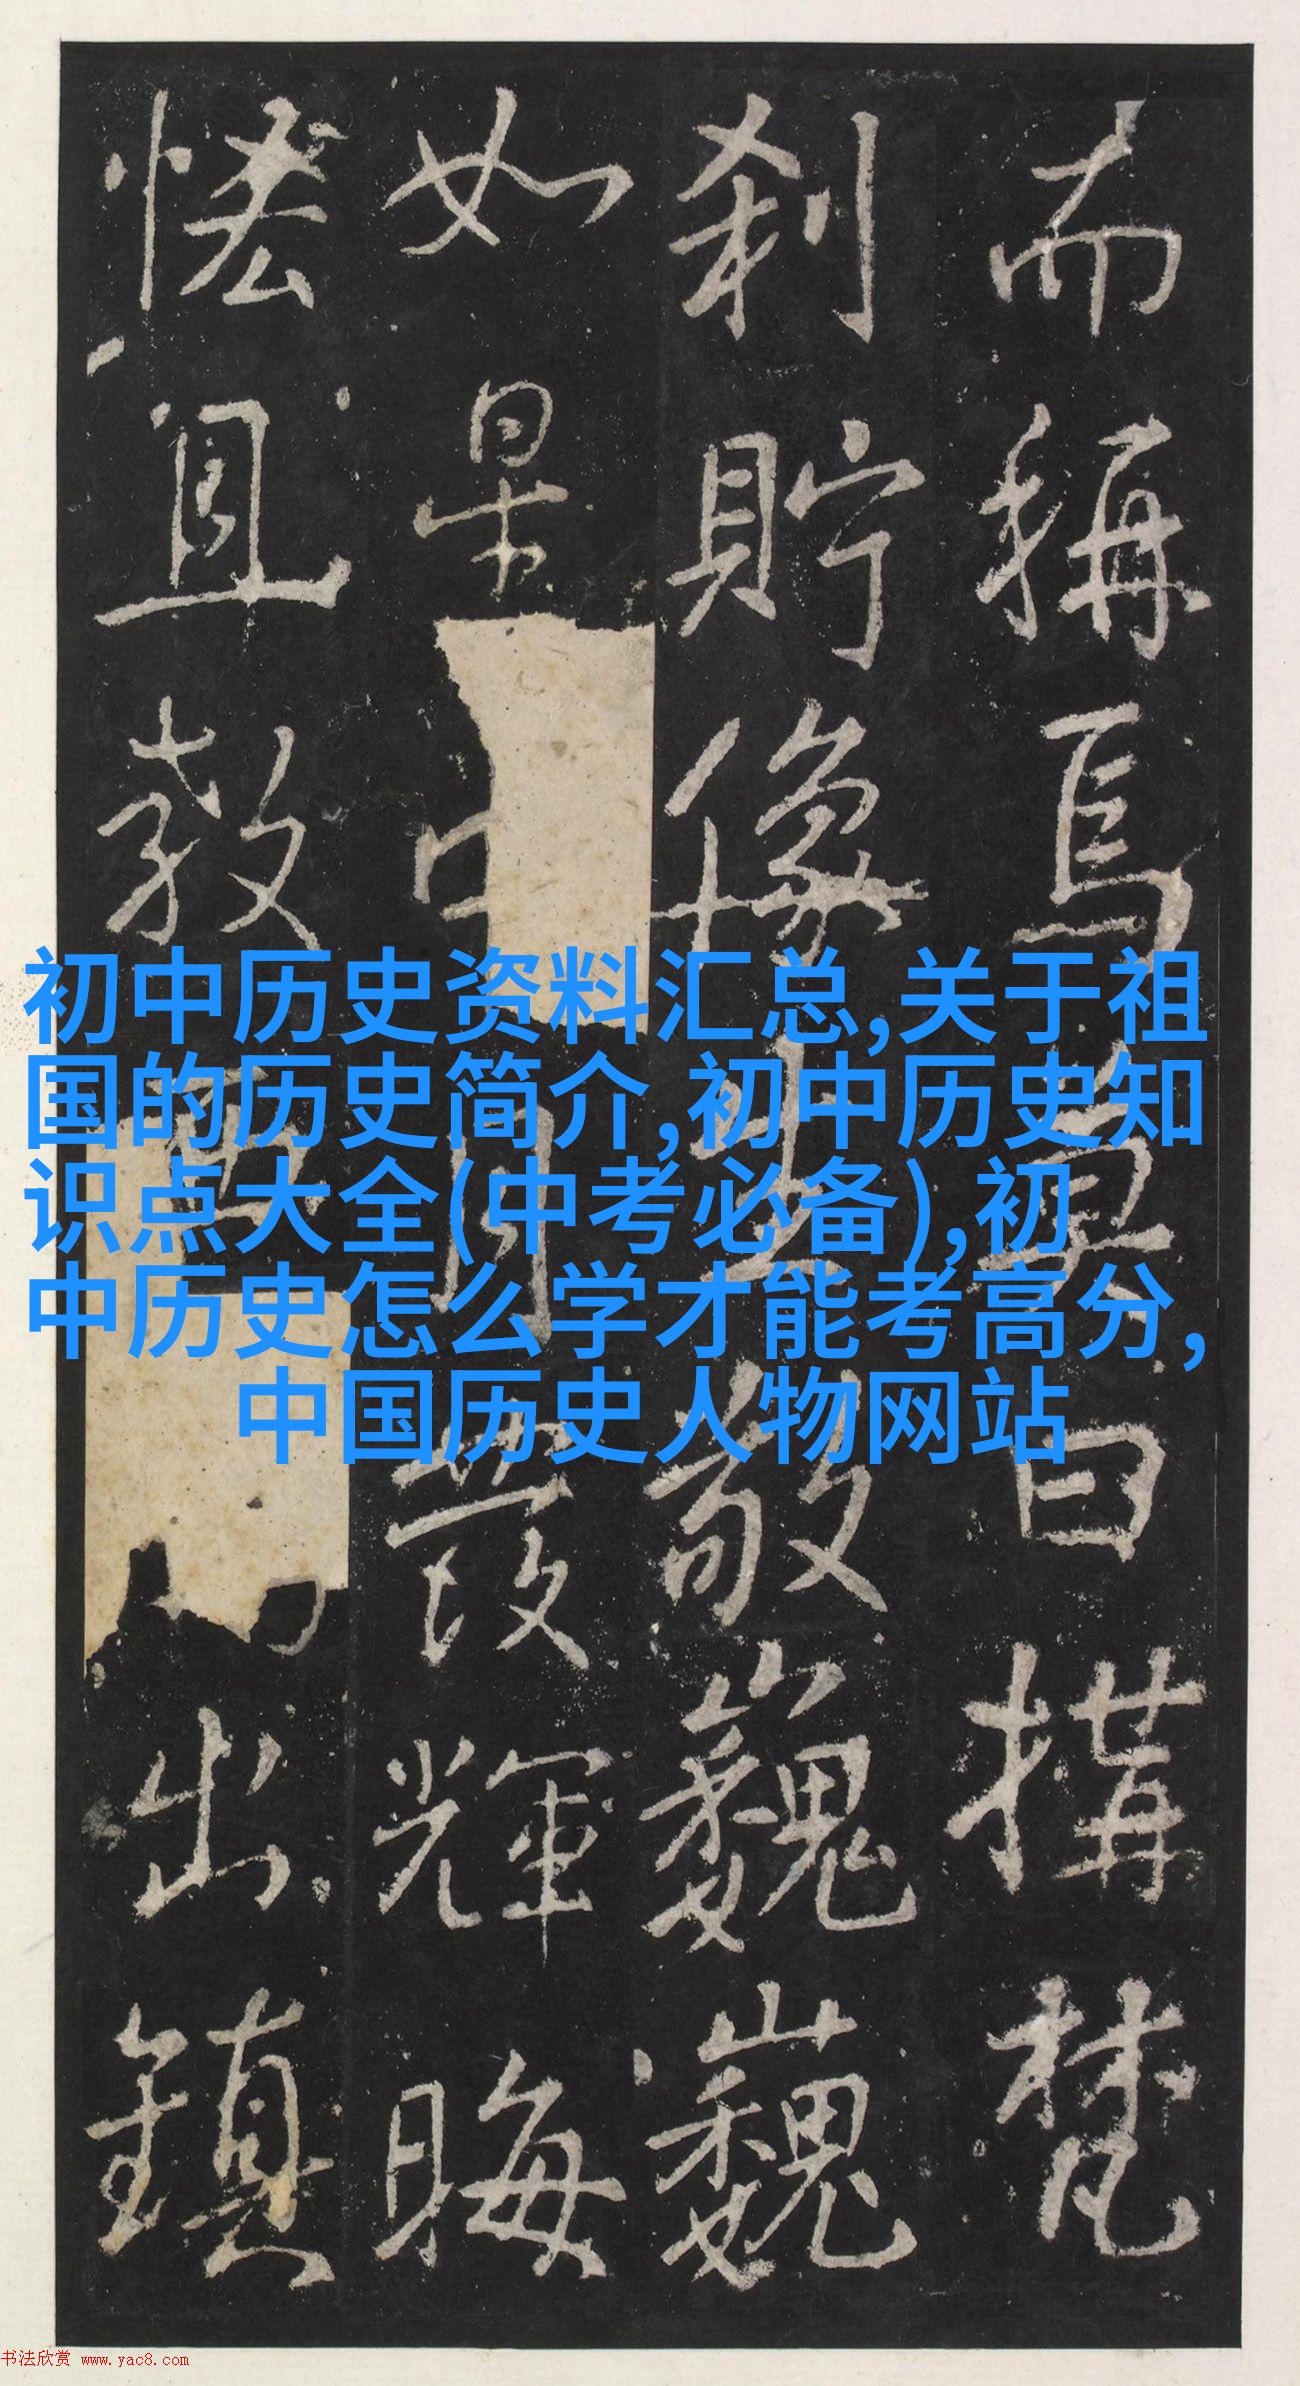 而稱焉爰曰搆梵
刹貯像
敞巍巍
如杲
月
光輝晦
怪宜教
出鎮
初中历史资料汇总,关于祖
国的历史简介,初中历史知
识点大全(中考必备),初
中历史怎么学才能考高分,
中国历史人物网站
书法欣赏 www.yac8.com